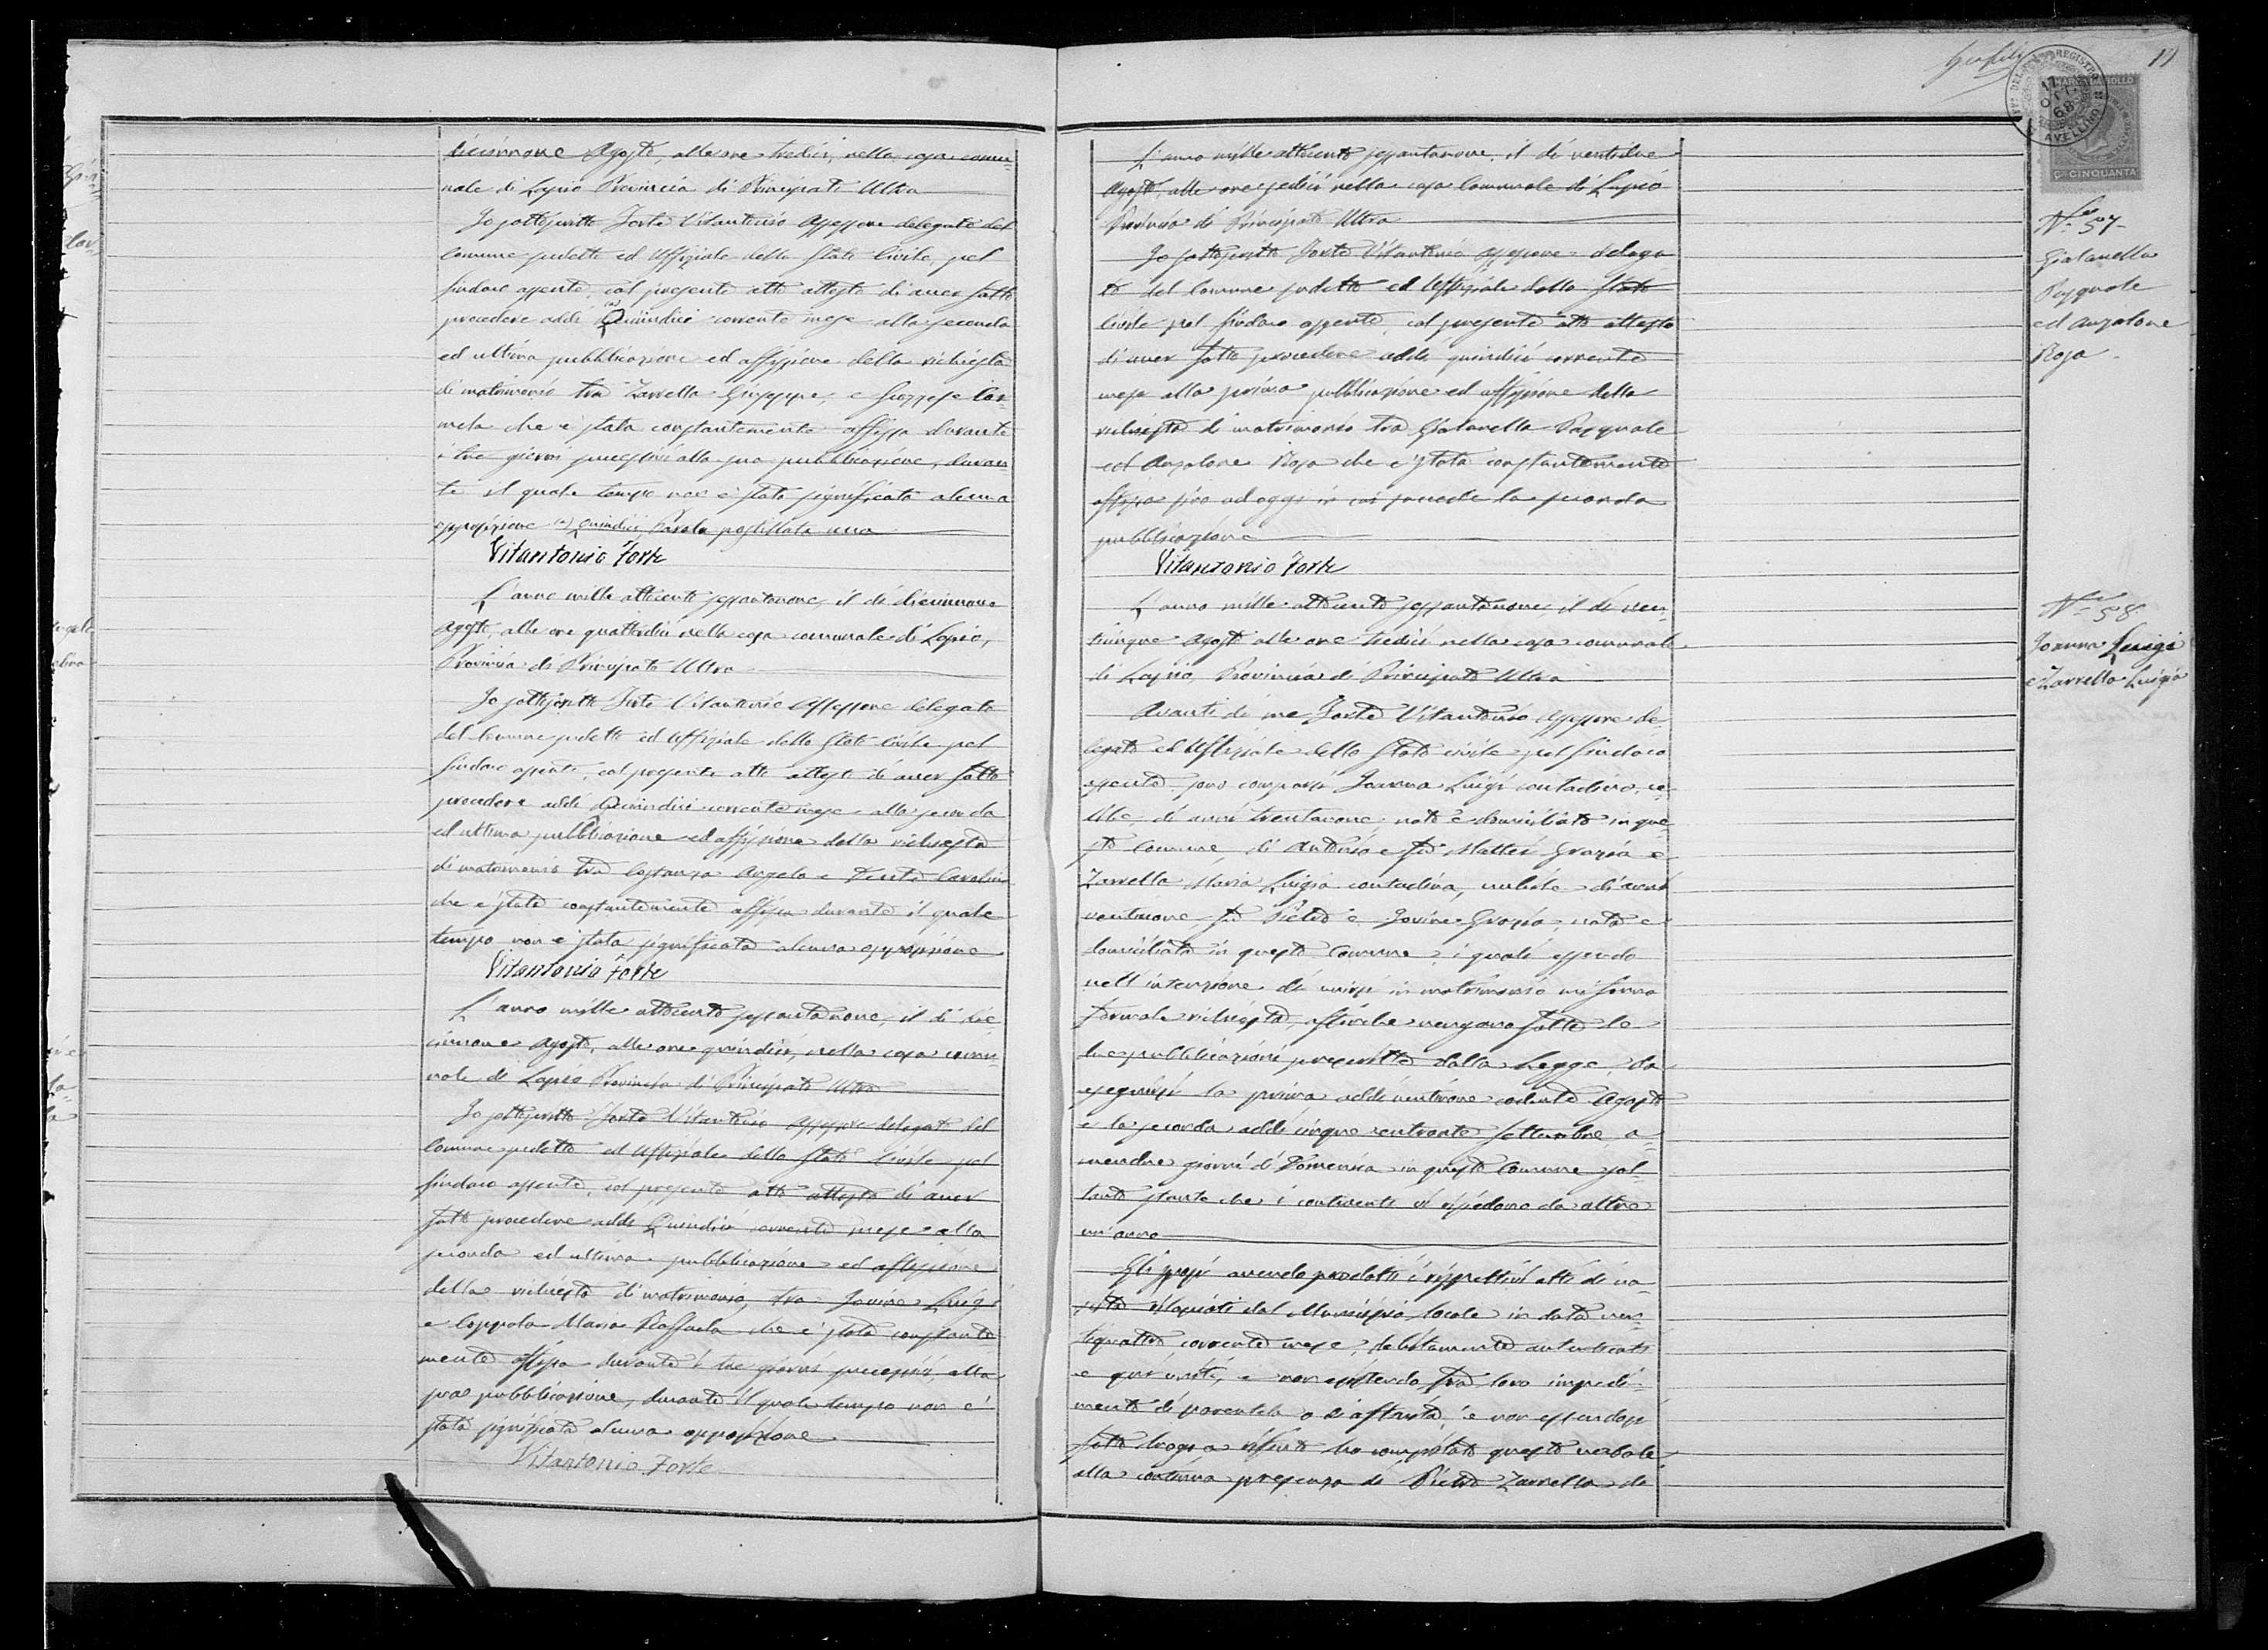 diciannove Agosto, alle ore tredici, nella casa comu=
nale di Lapio Provincia di Principato Ultra
Io sottoscritto Forte Vitantonio Assessore delegato del
Comune sudetto ed Uffiziale dello Stato Civile, pel
Sindaco assente, col presente atto attesto di aver fatto
procedere addì (a) Quindici corrente mese alla seconda
ed ultima pubblicazione ed affissione della richiesta
di matrimonio tra Zarrella Giuseppe, e Car=
mela che è stata constantemente affissa durante
i tre giorni successivi alla sua pubblicazione, duran=
te il quale tempo non è stata significata alcuna
opposizione (a) Quindici Parola postillata una
Vitantonio Forte
L'anno mille ottocento sessantanove, il dì diciannove
Agosto, alle ore quattordici nella casa comunale di Lapio,
Provincia di Principato Ultra
Io sottoscritto Forte Vitantonio Assessore delegato
del Comune sudetto ed Uffiziale dello Stato Civile pel
Sindaco assente, col presente atto attesto di aver fatto
procedere addì Quindici corrente mese alla seconda
ed ultima pubblicazione ed affissione della richiesta
di matrimonio tra Costanza Angelo e Carolina
che è stata constantemente affissa durante il quale
tempo non è stata significata alcuna opposizione
Vitantonio Forte
L'anno mille ottocento sessantanove, il dì dic
iannove Agosto, alle ore quindici, nella casa comu=
nale di Lapio Provincia di Principato Ultra
Io sottoscritto Forte Vitantonio Assessore delegato del
Comune sudetto ed Uffiziale dello Stato Civile pel
Sindaco assente, col presente atto attesto di aver
fatto procedere addì Quindici corrente mese alla
seconda ed ultima pubblicazione ed affissione
della richiesta di matrimonio, tra Iovine Luigi
e Coppola Maria Raffaela che è stata constante
mente affissa durante i tre giorni successivi, alla
sua pubblicazione, durante il quale tempo non è
stata significata alcuna opposizione
Vitantonio Forte
11
MARCA DA BOLLO
REGISTRO
17
OTT.
68
AVELLINO
CMI CINQUANTA
L'anno mille ottocento sessantanove, il dì ventidue
Agosto, alle ore sedici nella casa Comunale di Lapio
Provincia di Principato Ultra
Io sottoscritto Forte Vitantonio Assessore delega
to del Comune sudetto ed Uffiziale dello Stato
Civile pel Sindaco assente, col presente atto attesto
di aver fatto procedere addì quindici corrente
mese alla prima pubblicazione ed affissione della
richiesta di matrimonio tra Gialanella Pasquale
ed Anzalone Rosa che è stata constantemente
affissa fino ad oggi in cui procede la seconda
pubblicazione
Vitantonio Forte
No 57-
Gialanella
Pasquale
ed Anzalone
Rosa -
L'anno mille ottocento sessantanove il dì ven
tinque Agosto alle ore tredici nella casa comunale
di Lapio, Provincia di Principato Ultra
Avanti di me Forte Vitantonio Assessore de
legato ed Uffiziale dello Stato civile pel Sindaco
assente, sono comparsi Ioanna Luigi contadino, ce=
libe, di anni trentanove nato e domiciliato in que=
sto Comune, di Antonio e fu Mattei Grazia e
Zarrella Maria Luigia contadina, nubile di anni
ventinove fu Pietro e Iovine Grazia, nata e
domiciliata in questo Comune, i quali essendo
nell'intenzione di unirsi in matrimonio mi fanno
formale richiesta, affinchè vengano fatte le
due pubblicazioni prescritte dalla Legge, da
eseguirsi la prima addì ventinove cadente Agosto
e la seconda addì cinque entrante Settembre, a=
mendue giorni di Domenica in questo Comune sol=
tanto stante che i contraenti vi risiedono da oltre
un'anno
Gli sposi avendo prodotti i rispettivi atti di na=
scita rilasciati dal Municipio locale in data ven=
tiquattro corrente mese, debitamente autenticati
e qui uniti, e non esistendo fra loro impedi=
mento di parentela o di affinità, e non essendosi
fatto luogo a rifiuto ho compilato questo verbale
alla continua presenza di Pietro Zarrella di
No 58
Ioanna Luigi
e Zarrella Luigia